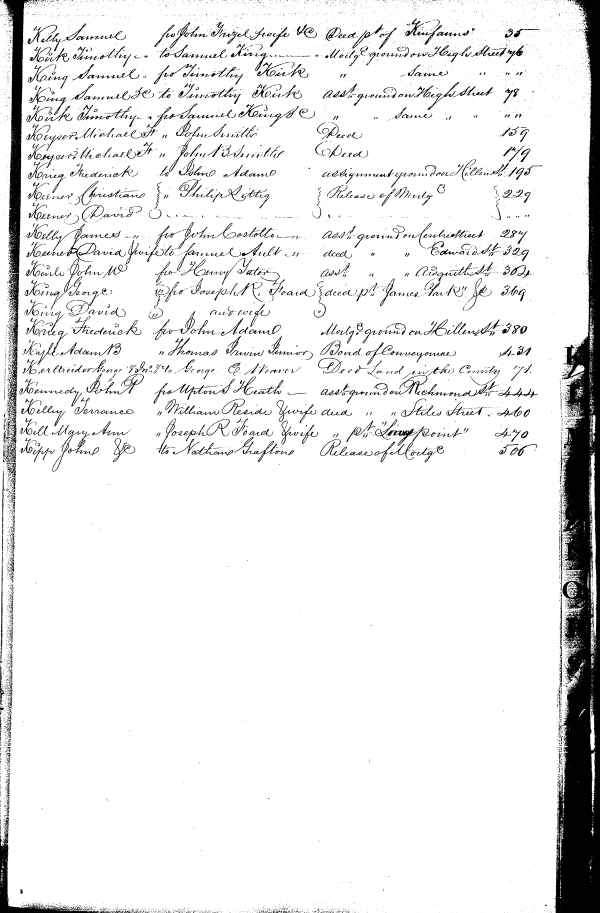 Kelly Samuel fro John Frizel & wife &c Deed pt of "Kinfauns" 35
Kirk Timothy " to Samuel King Mortge ground on High Street 76
King Samuel " fro Timothy Kirk " same " " "
King Samuel &c to Timothy Kirk asst ground on High Street 78
Kirk Timothy " fro Samuel King &c " " same " " " "
Keyser Michael F " John Smith Deed 159
Keyser Michael F " John B Smith Deed 179
Krieg Frederick to John Adam assignment ground on Hillen St 195
Keener, Christian } " Philip Littig } Release of Mortge } 229
Keener, David } } } " "
Kelly James " fro John Costollo " asst ground on Centre Street 287
Keener David & wife to Samuel Ault " deed " " Edward St 329
Karle John W fro Henry asst " " Asquith St 364
King George fro Joseph R. Foard } deed pt "James Park" &c 369
King David and wife
Krieg Frederick fro John Adam Mortge ground on Hillen St 380
Adam B " Thomas Irwin Junior Bond of Conveyance 431
George to George E. Weaver Deed Land in the County 71
Kennedy John P fro Upton S Heath asst ground on Richmond St 444
Kelley Terrance " William Reside & wife deed " " Stiles Street 460
Kell Mary Ann " Joseph R Foard & wife " pt "Long point" 470
Kipp John &c to Nathan Grafton Release of Mortge 506